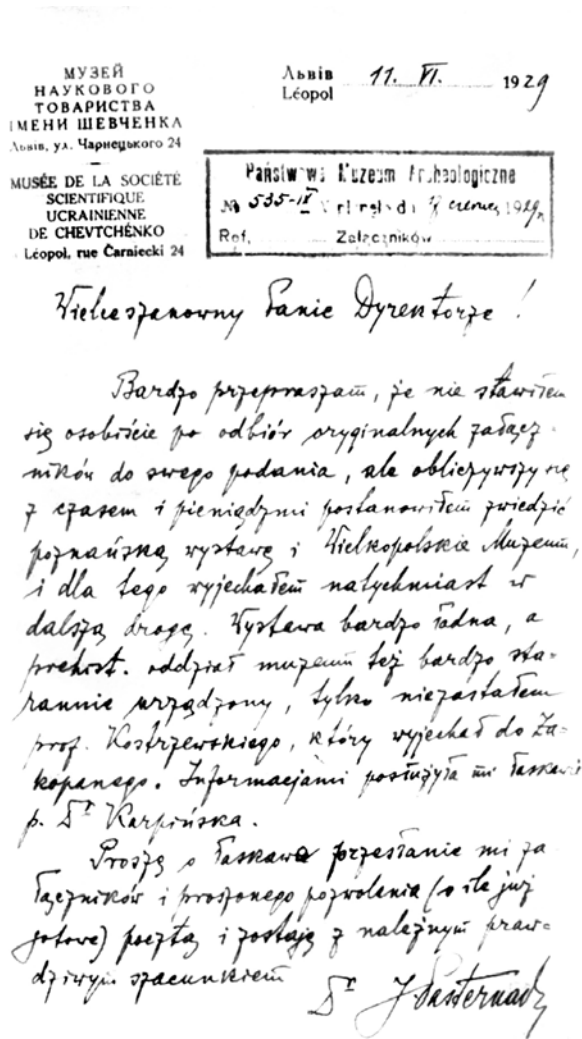 МУЗЕЙ
НАУКОВОГО
ТОВАРИСТВА
ІМЕНИ ШЕВЧЕНКА
Львів, ул. Чарнецького 24
MUSÉE DE LA SOCIÉTÉ
SCIENTIFIQUE
UCRAINIENNE
DE CHEVTCHÉNKO
Léopol, rue Čarniecki 24
Львів
Léopol 11. VI. 1929
Państwowe Muzeum Archeologiczne
№ 535-IX czerwca 1929 r.
Ref. Załączników
Wielceszanowny Panie Dyrektorze!
Bardzo przepraszam, że nie stawiłem
się osobiście po odbiór oryginalnych załącz-
ników do swego podania, ale obliczywszy się
z czasem i pieniędzmi postanowiłem zwiedzić
poznańską wystawę i Wielkopolskie Muzeum,
i dla tego wyjechałem natychmiast w
dalszą drogę. Wystawa bardzo ładna, a
prehist. oddział muzeum też bardzo sta-
rannie urządzony, tylko niezastałem
prof. Kostrzewskiego, który wyjechał do Za-
kopanego. Informacjami posłużyła mi łaskawie
p. Dr Karpińska.
Proszę o łaskawe przesłanie mi za-
łączników i proszonego pozwolenia (o ile już
gotowe) pocztą i zostaję z należnym praw-
dziwym szacunkiem
Dr J. Pasternak